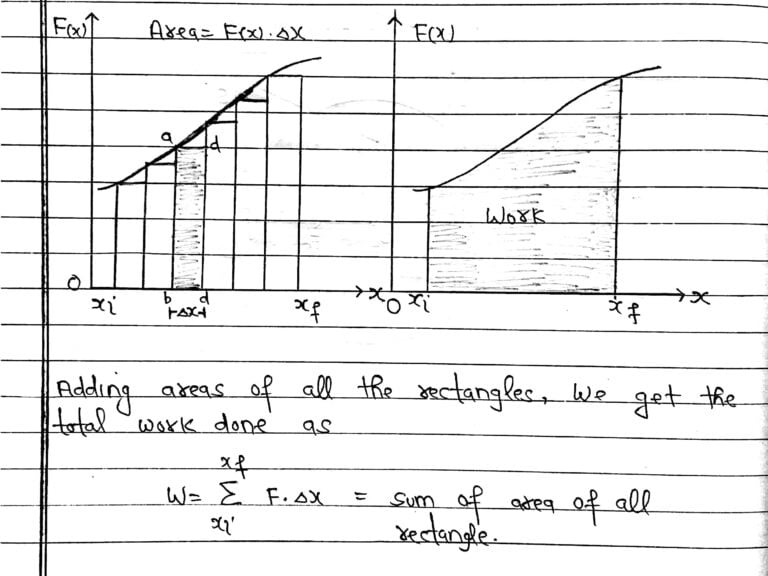 F(x) Area = F(x).Δx F(x)
a d
Work
O x O x
xi b d xf xi xf
Δx
Adding areas of all the rectangles, We get the
total work done as
xf
W= Σ F.Δx = sum of area of all
xi rectangle.